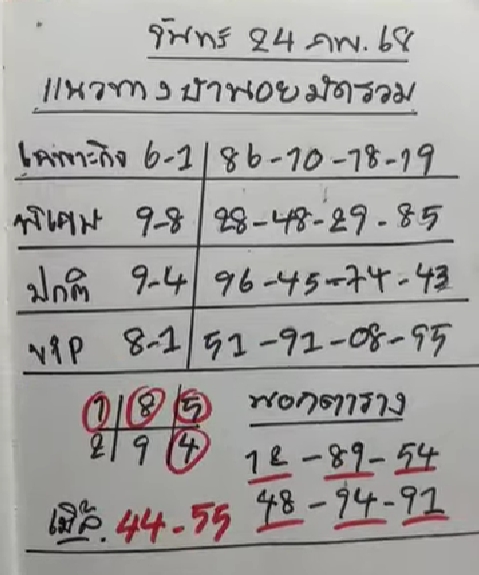 จันทร์ 24 กพ. 68
แนวทางฮานอยมัดรวม
เฉพาะกิจ 6-1 86-10-18-19
พิเศษ 9-8 28-48-29-85
ปกติ 9-4 96-45-74-43
VIP 8-1 51-91-08-95
1 8 5
2 9 4
พอกตาราง
12-89-54
48-94-91
เบิ้ล. 44-55